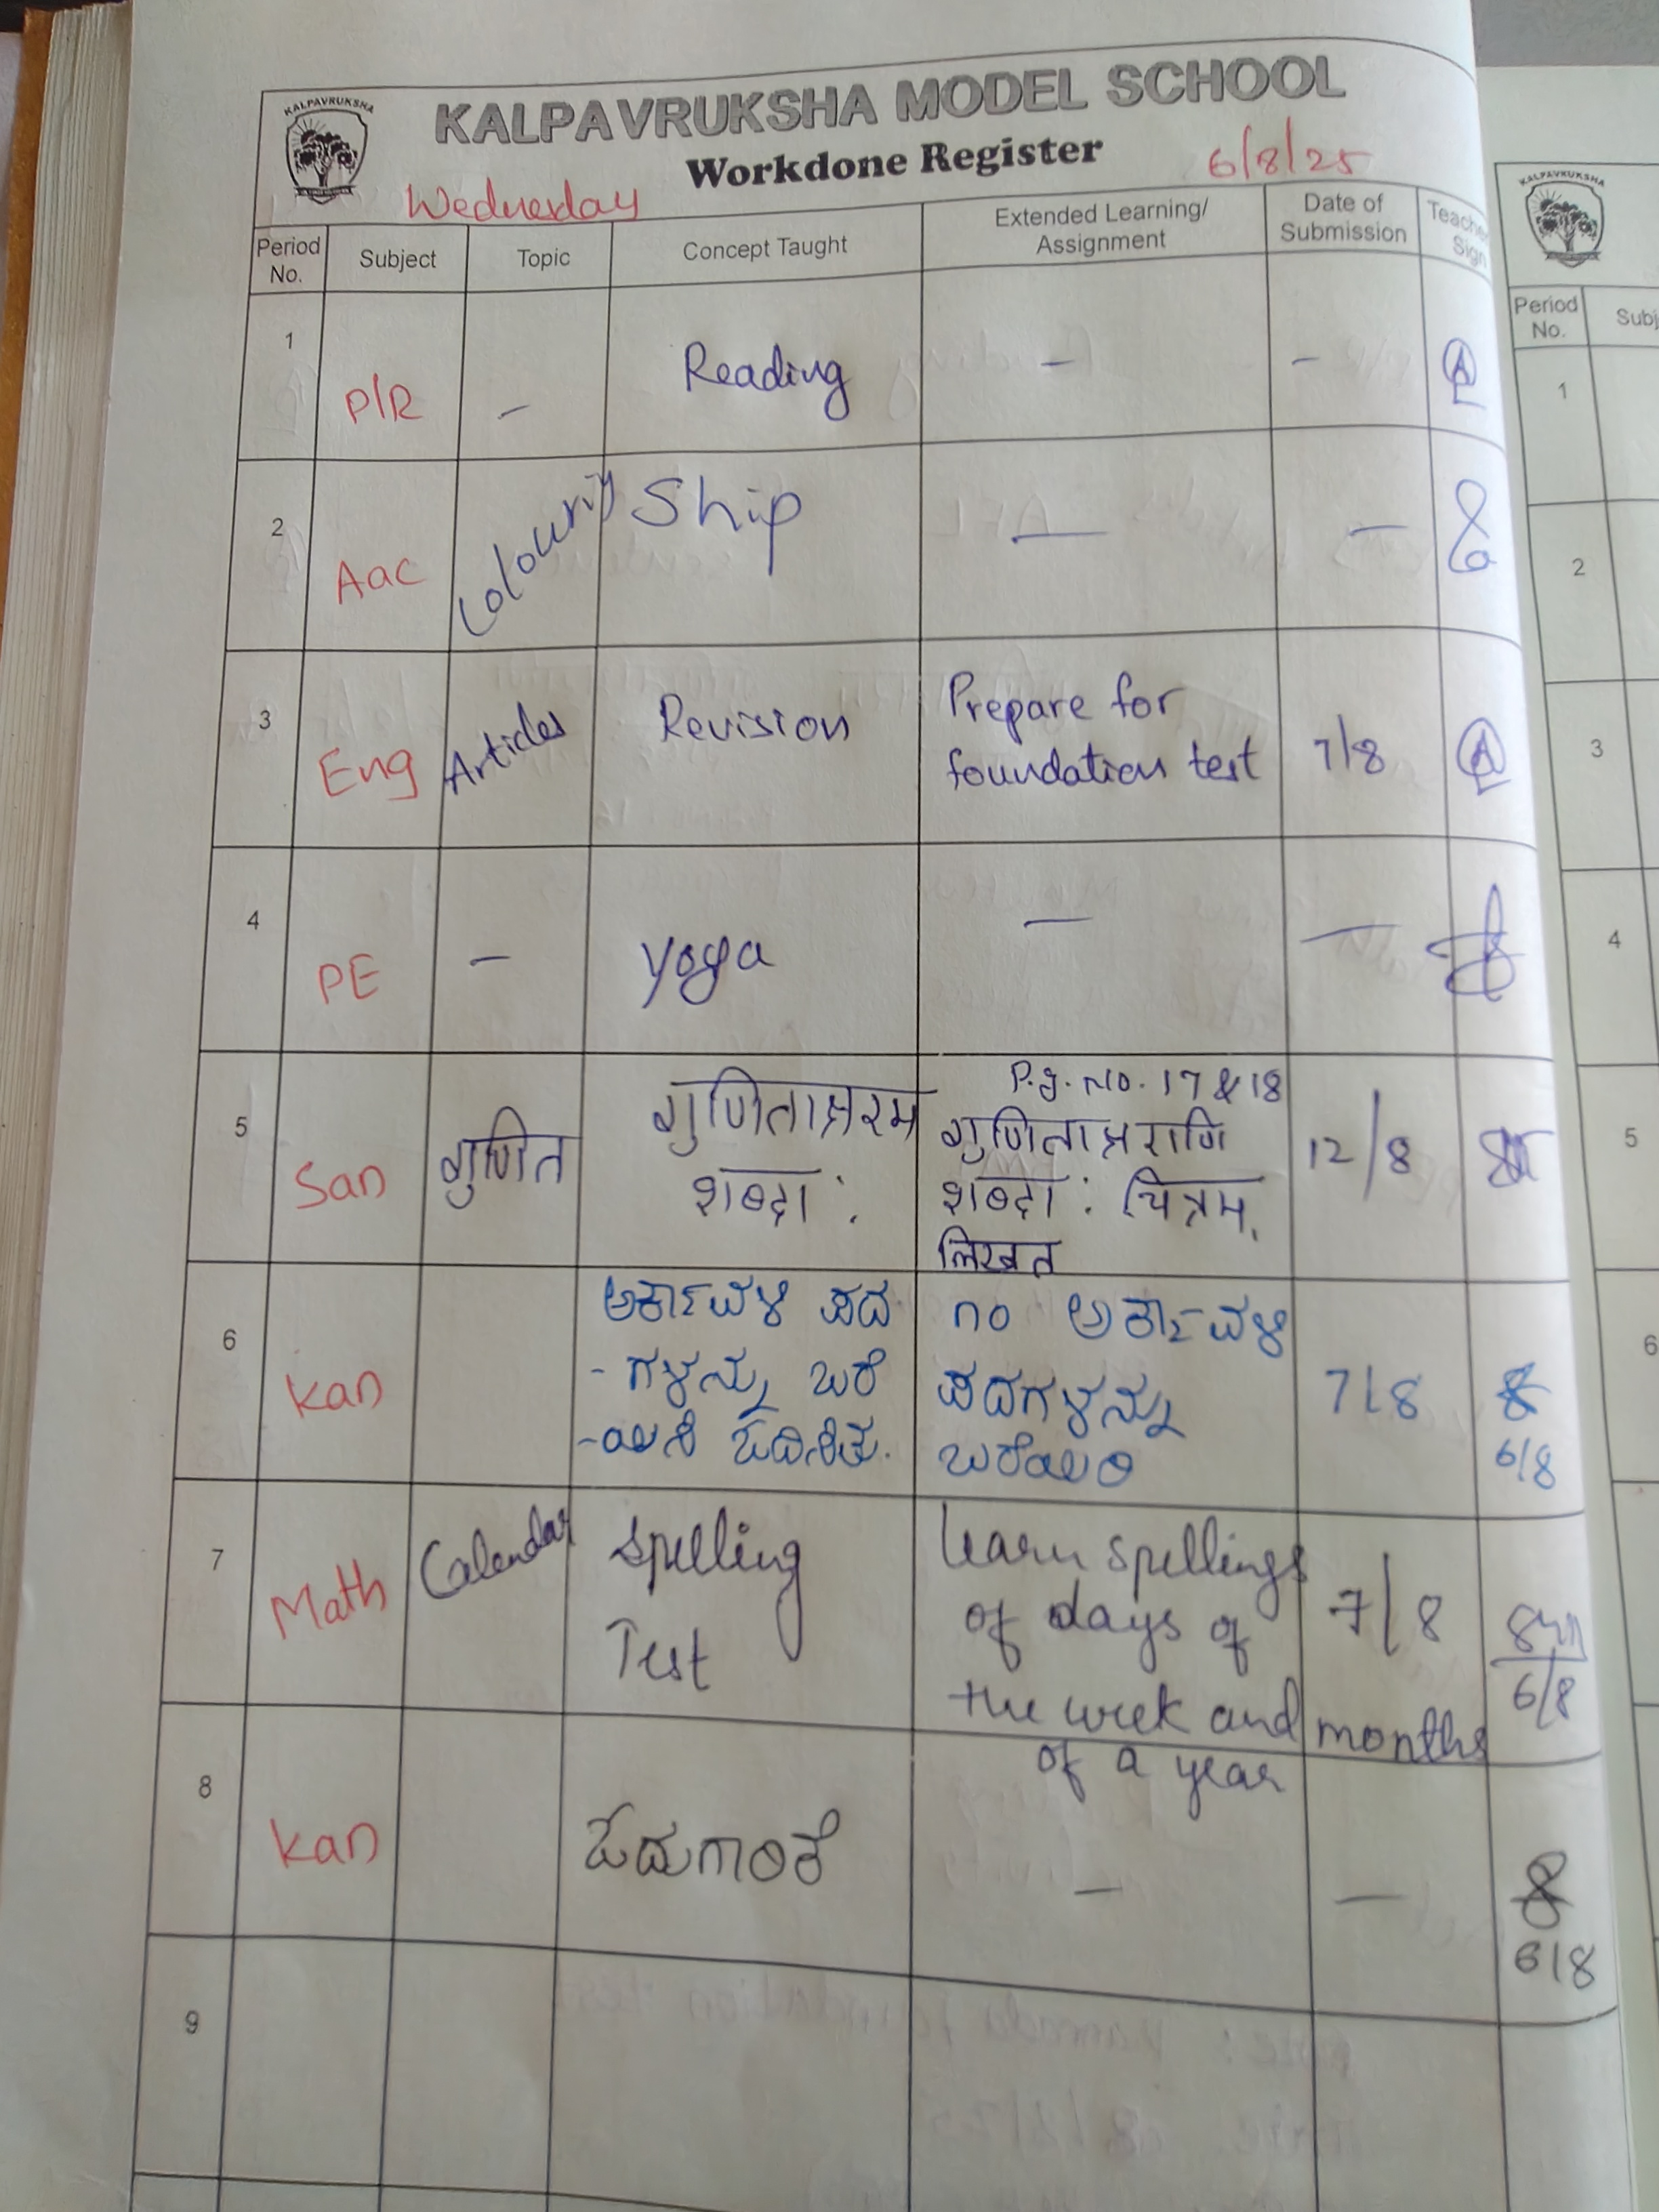 KALPAVRUKSHA
KALPAVRUKSHA MODEL SCHOOL
Workdone Register
Wednesday 6/8/25
Period No. Subject Topic Concept Taught Extended Learning/ Assignment Date of Submission Teacher Sign
1 P/R - Reading - -
2 Aac Colouring Ship - -
3 Eng Articles Revision Prepare for
foundation test 7/8
4 PE - yoga - -
5 San गुणित गुणिताक्षरम
शब्दा :
P.g. No. 17 & 18
गुणिताक्षराणि
शब्दा : चित्रम्
लिखत
12/8
6 Kan ಅರ್ಕಾವಳಿ ಪದ
- ಗಳನ್ನು ಬರೆ
-ಯಿಸಿ ಓದಿಸಿತು.
೧೦ ಅರ್ಕಾವಳಿ
ಪದಗಳನ್ನು
ಬರೆಯಿರಿ
7/8
6/8
7 Math Calendar Spelling
Test
Learn spellings
of days of
the week and months
of a year
7/8
6/8
8 Kan ಓದುಗಾರಿಕೆ - -
6/8
9
KALPAVRUKSHA
Period
No.
1
2
3
4
5
6